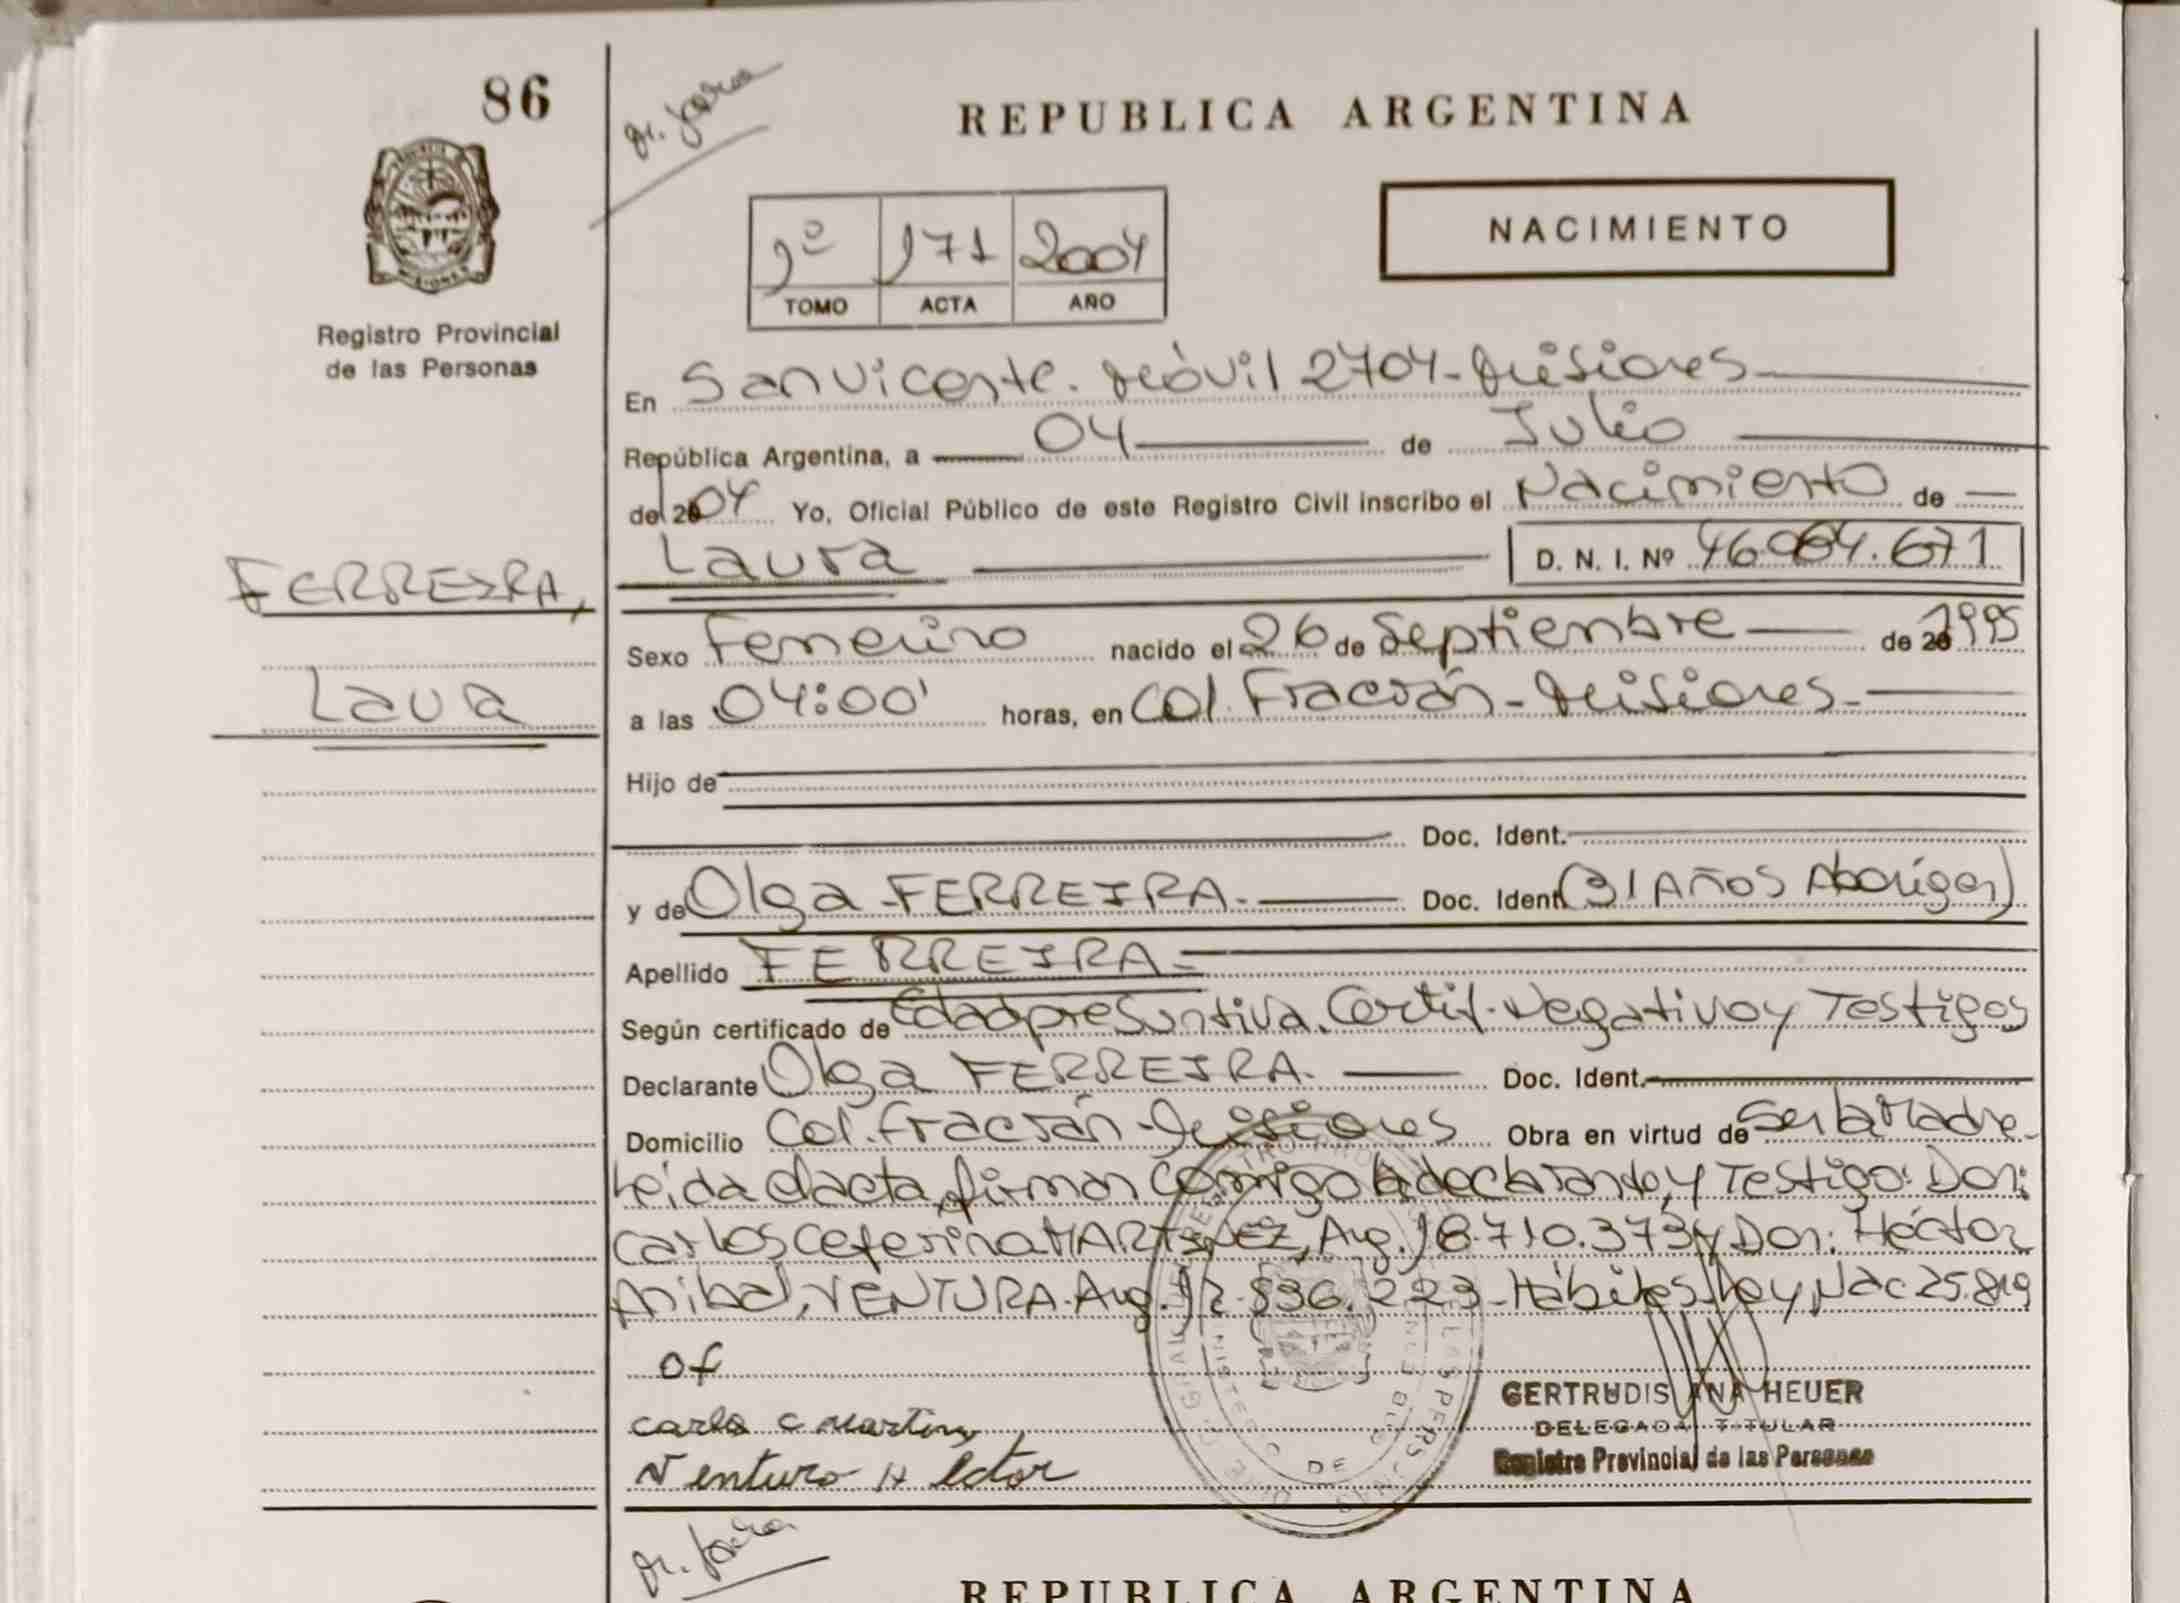 86
REPUBLICA ARGENTINA
1º 171 2004
TOMO ACTA AÑO
NACIMIENTO
Registro Provincial
de las Personas
En San Vicente. Móvil 2704-Misiones
República Argentina, a 04 de Julio
de 2004 Yo, Oficial Público de este Registro Civil inscribo el Nacimiento de
Laura D. N. I. Nº 46.064.671
FERREIRA,
Sexo Femenino nacido el 26 de Septiembre de 1995
Laura
a las 04:00' horas, en Col. Fracrán - Misiones
Hijo de
Doc. Ident.
y de Olga FERREIRA. Doc. Ident. (31 AÑOS Aborigen)
Apellido FERREIRA
Según certificado de Edad presuntiva. Certif. Negativo y Testigos
Declarante Olga FERREIRA. Doc. Ident.
Domicilio Col. Fracrán-Misiones Obra en virtud de Ser la Madre
Leída el acta, firman conmigo la declarante y Testigo: Don:
Carlos Ceferino MARTINEZ, Arg. 18.710.373 y Don: Héctor
Anibal, VENTURA. Arg. 12.836.223 - Hábiles Ley Nac 25.819
of
carlos c martinz
Venturo H ector
GERTRUDIS ANA HEUER
DELEGADA TITULAR
Registro Provincial de las Personas
REPUBLICA ARGENTINA